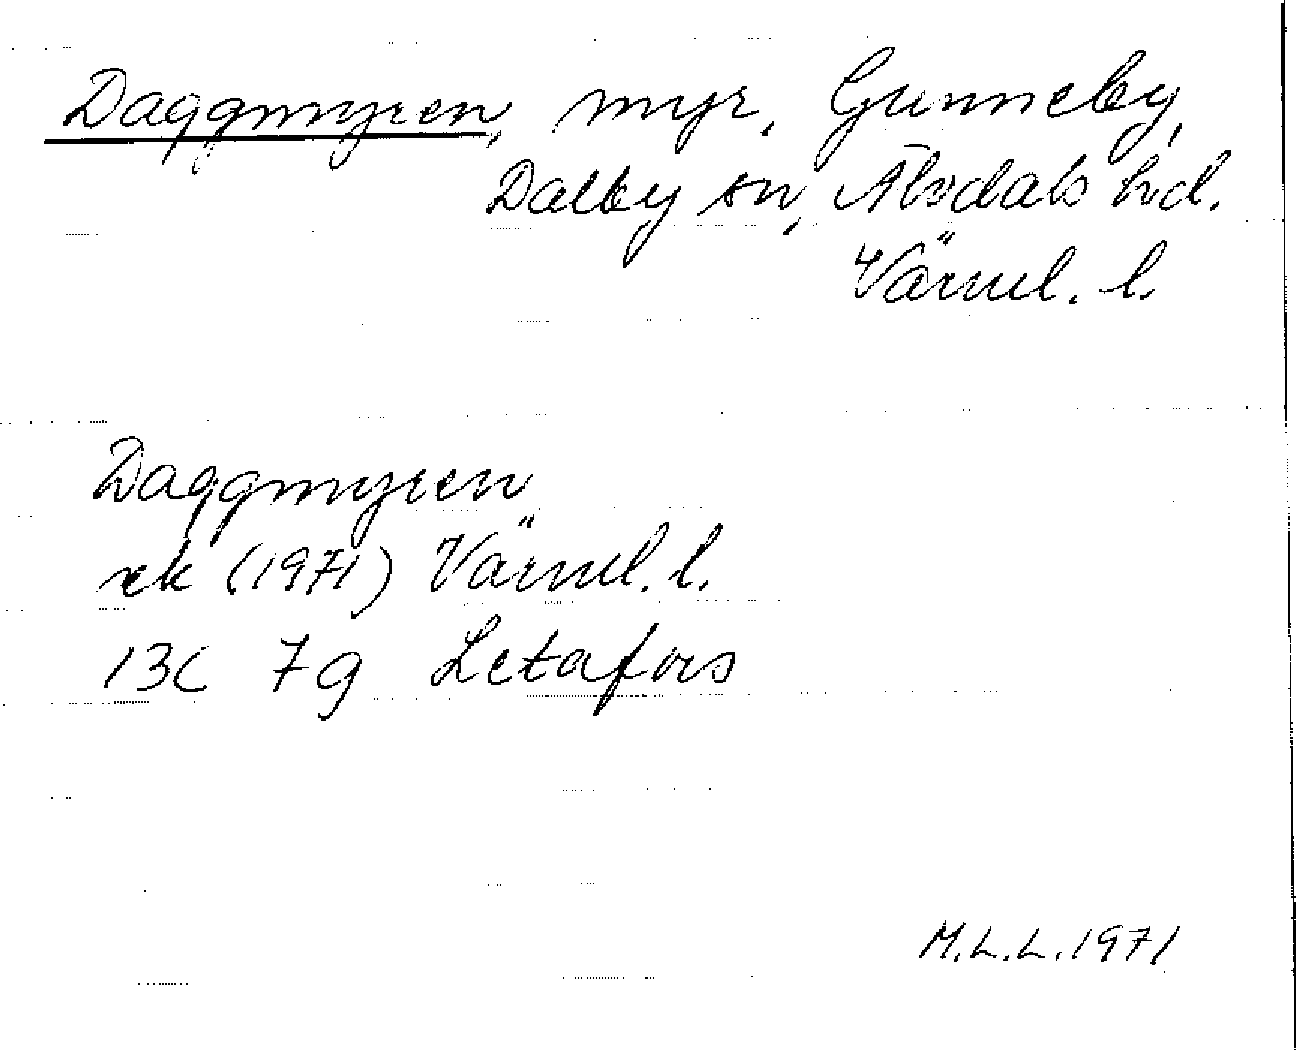 Daggmyren, myr, Gunneby,
Dalby sn, Älvdals hd.
Värml. l.
Daggmyren
ek (1971) Värml. l.
13C 7g Letafors
M.L.L. 1971